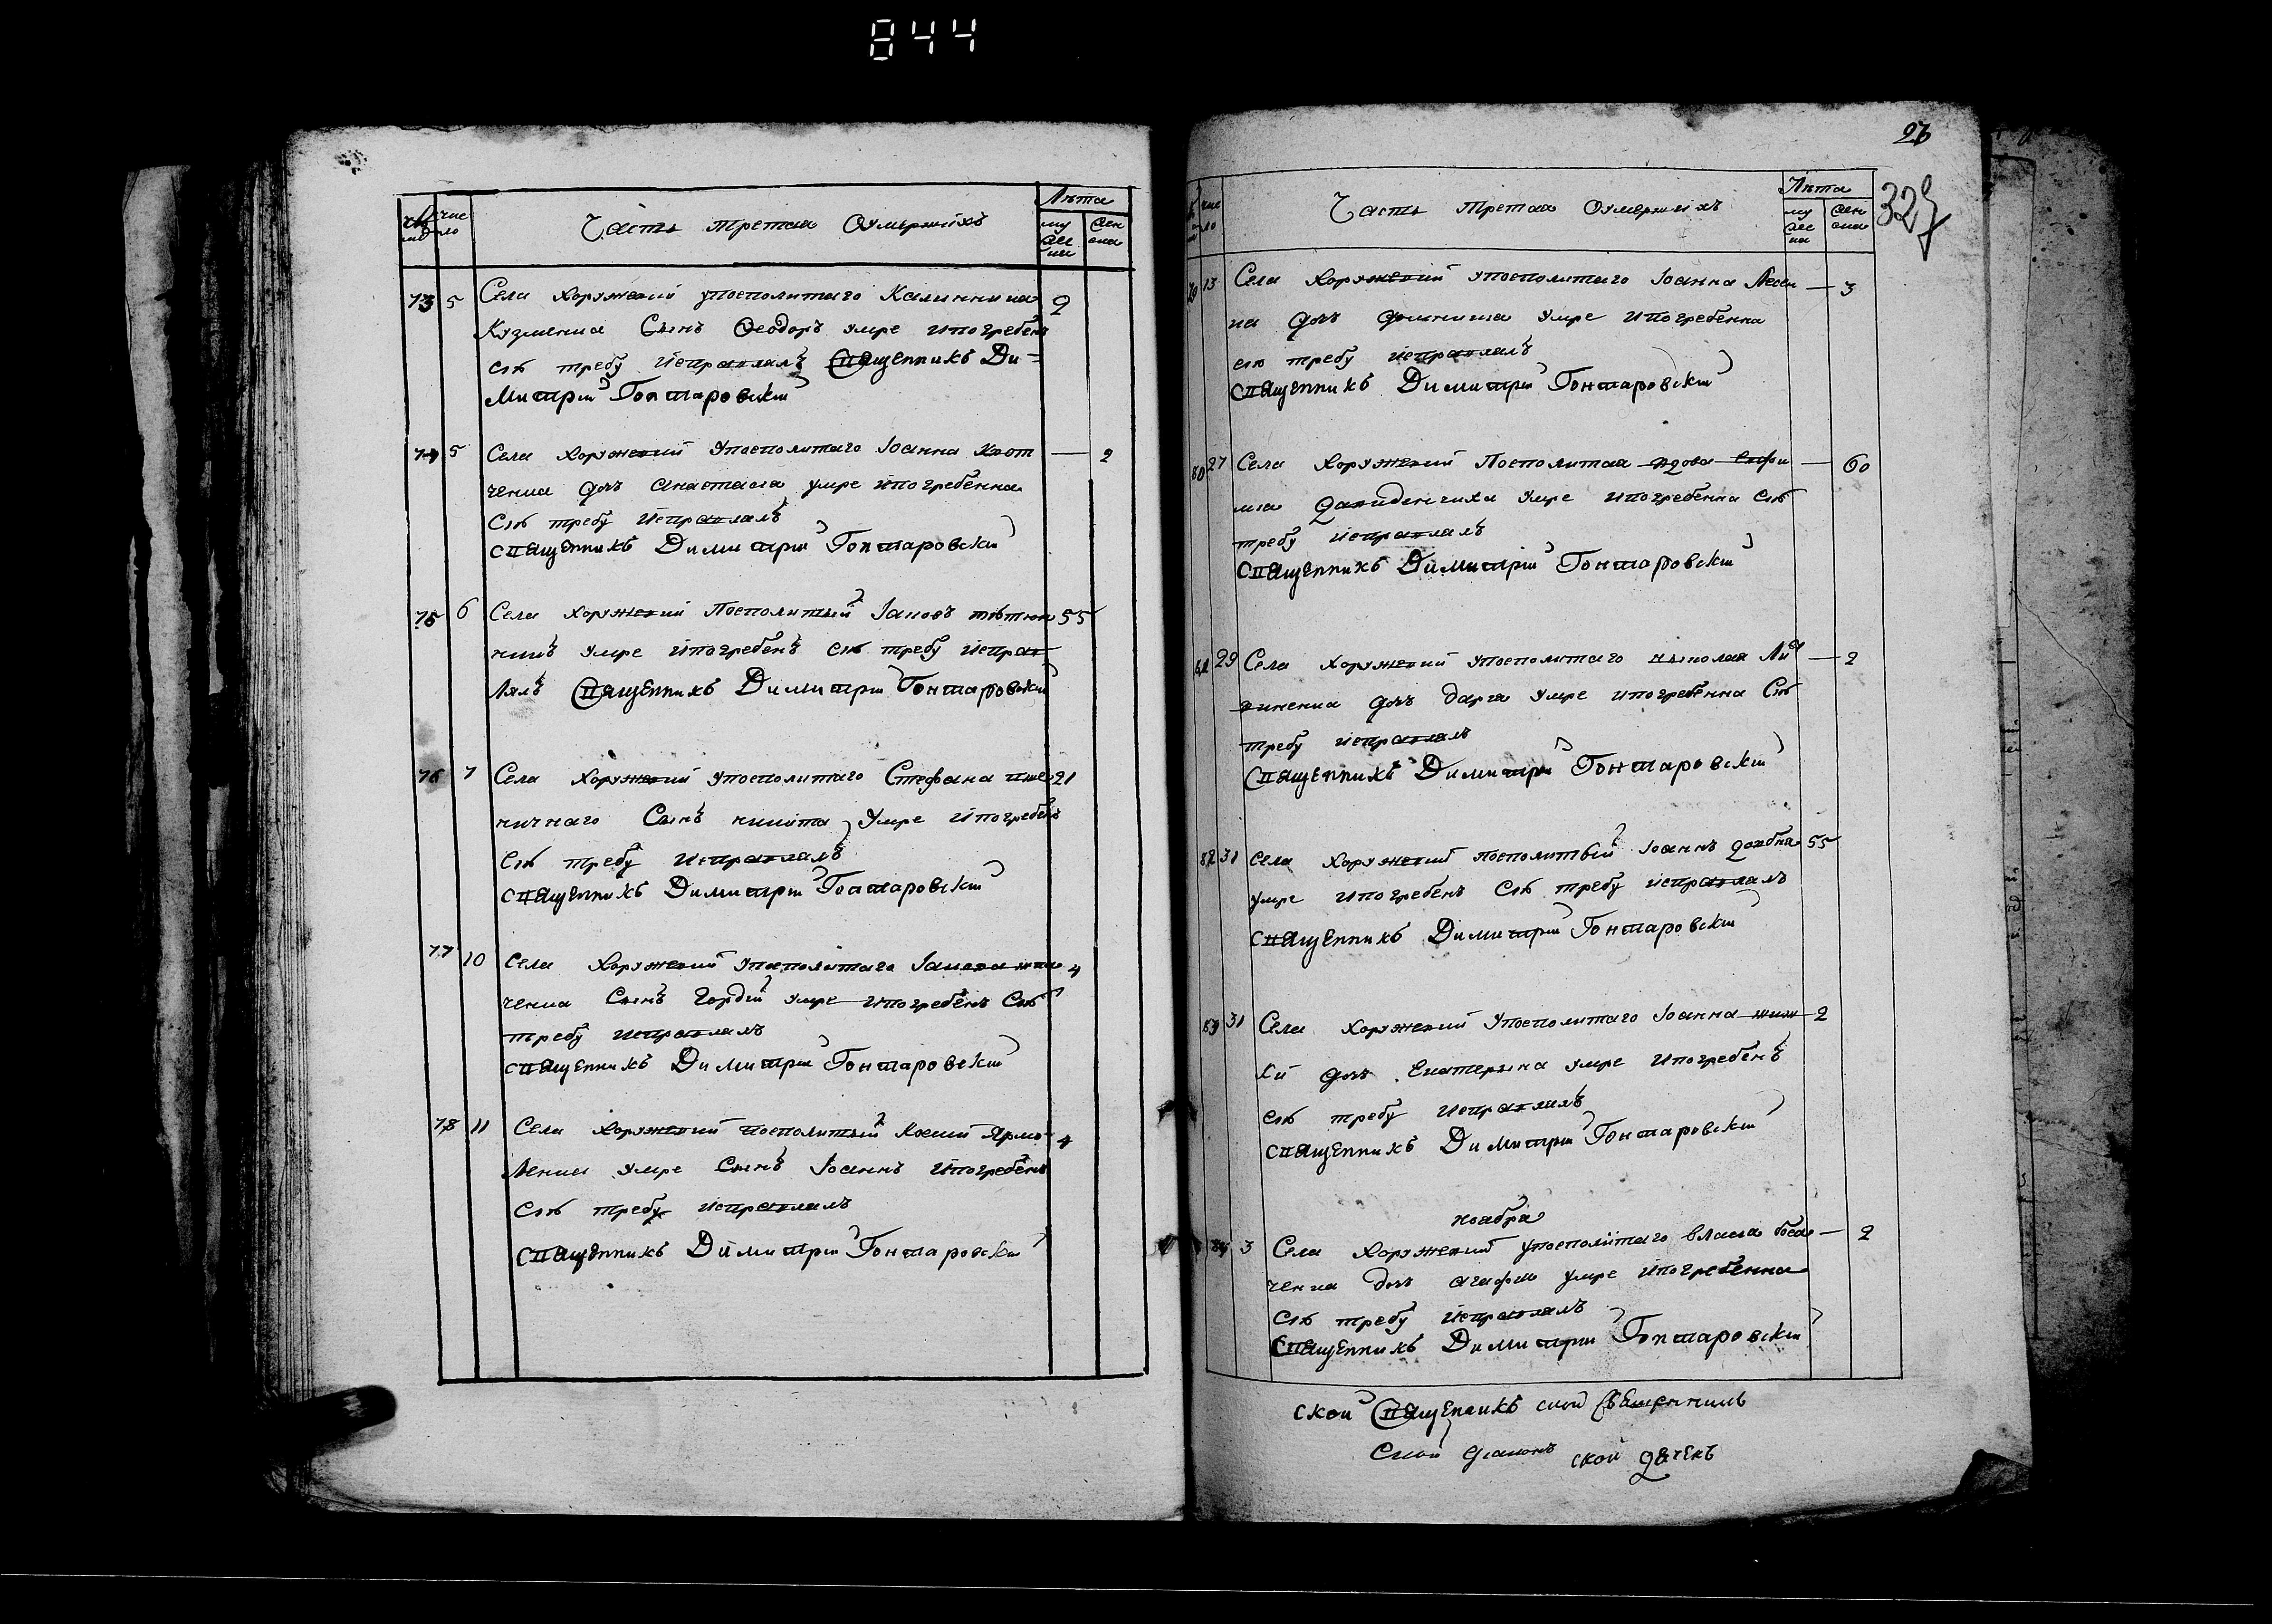 844
число
Часть третая Оумершихъ
Лѣта
му
жес
ки
жен
ска
73 5 Села Хоружевки упосполитаго Калинника 9
Кузменка Сынъ Феодоръ умре ипогребенъ
сію требу исправлялъ Священникъ Ди-
митрій Гонтаровскій
74 5 Села Хоружевки упосполитаго Іоанна — 2
ченка дочъ Анастасиа умре ипогребенна
Сію требу исправлялъ
священникъ Димитрій Гонтаровскій
75 6 Села Хоружевки Посполитый Іаковъ 55
умре ипогребенъ сію требу исправ
лялъ Священникъ Димитрій Гонтаровскій
76 7 Села Хоружевки упосполитаго Стефана пше 21
ничнаго Сынъ никита умре ипогребенъ
Сію требу исправлялъ
священникъ Димитрій Гонтаровскій
77 10 Села Хоружевки упосполитаго Іакова 4
ченка Сынъ Гордій умре ипогребенъ Сію
требу исправлялъ
священникъ Димитрій Гонтаровскій
78 11 Села Хоружевки посполитый Ярмо 4
ленка умре Сынъ Іоаннъ ипогребенъ
Сію требу исправлялъ
священникъ Димитрій Гонтаровскій
26
327
число
Часть третая Оумершихъ
Лѣта
му
жес
ки
жен
ска
13 Села Хоружевки упосполитаго Іоанна — 3
дочъ умре ипогребенна
сію требу исправлялъ
священникъ Димитрій Гонтаровскій
80 27 Села Хоружевки Посполитая вдова Евфи — 60
миа Давиденчиха умре ипогребенна Сію
требу исправлялъ
священникъ Димитрій Гонтаровскій
81 29 Села Хоружевки упосполитаго Николая Ли — 2
виненка дочъ дариа умре ипогребенна Сію
требу исправлялъ
Священникъ Димитрій Гонтаровскій
82 31 Села Хоружевки посполитый Іоаннъ Довбня 55
умре ипогребенъ Сію требу исправлялъ
священникъ Димитрій Гонтаровскій
83 31 Села Хоружевки упосполитаго Іоанна 2
дочъ Екатерина умре ипогребенъ
сію требу исправлялъ
священникъ Димитрій Гонтаровскій
ноабра
84 3 Села Хоружевки упосполитаго власа — 2
ченка дочъ агафиа умре ипогребенна
Сію требу исправлялъ
Священникъ Димитрій Гонтаровскій
ской Священникъ ской Священникъ
Ской диаконъ ской дячекъ